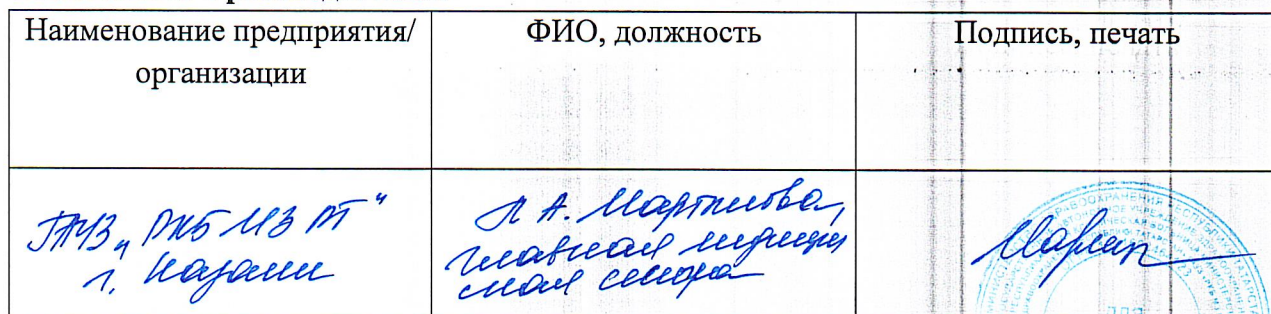 Наименование предприятия/
организации
ФИО, должность
Подпись, печать
ГАУЗ „РКБ МЗ РТ“
г. Казани
Л А. Мартынова,
главная медицин
ская сестра
ДЛЯ